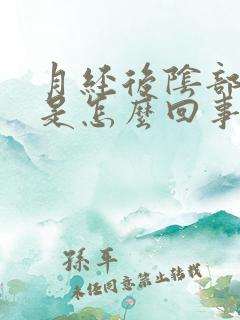 月經後陰部
是怎麼回事
孫平
未經同意禁止轉載